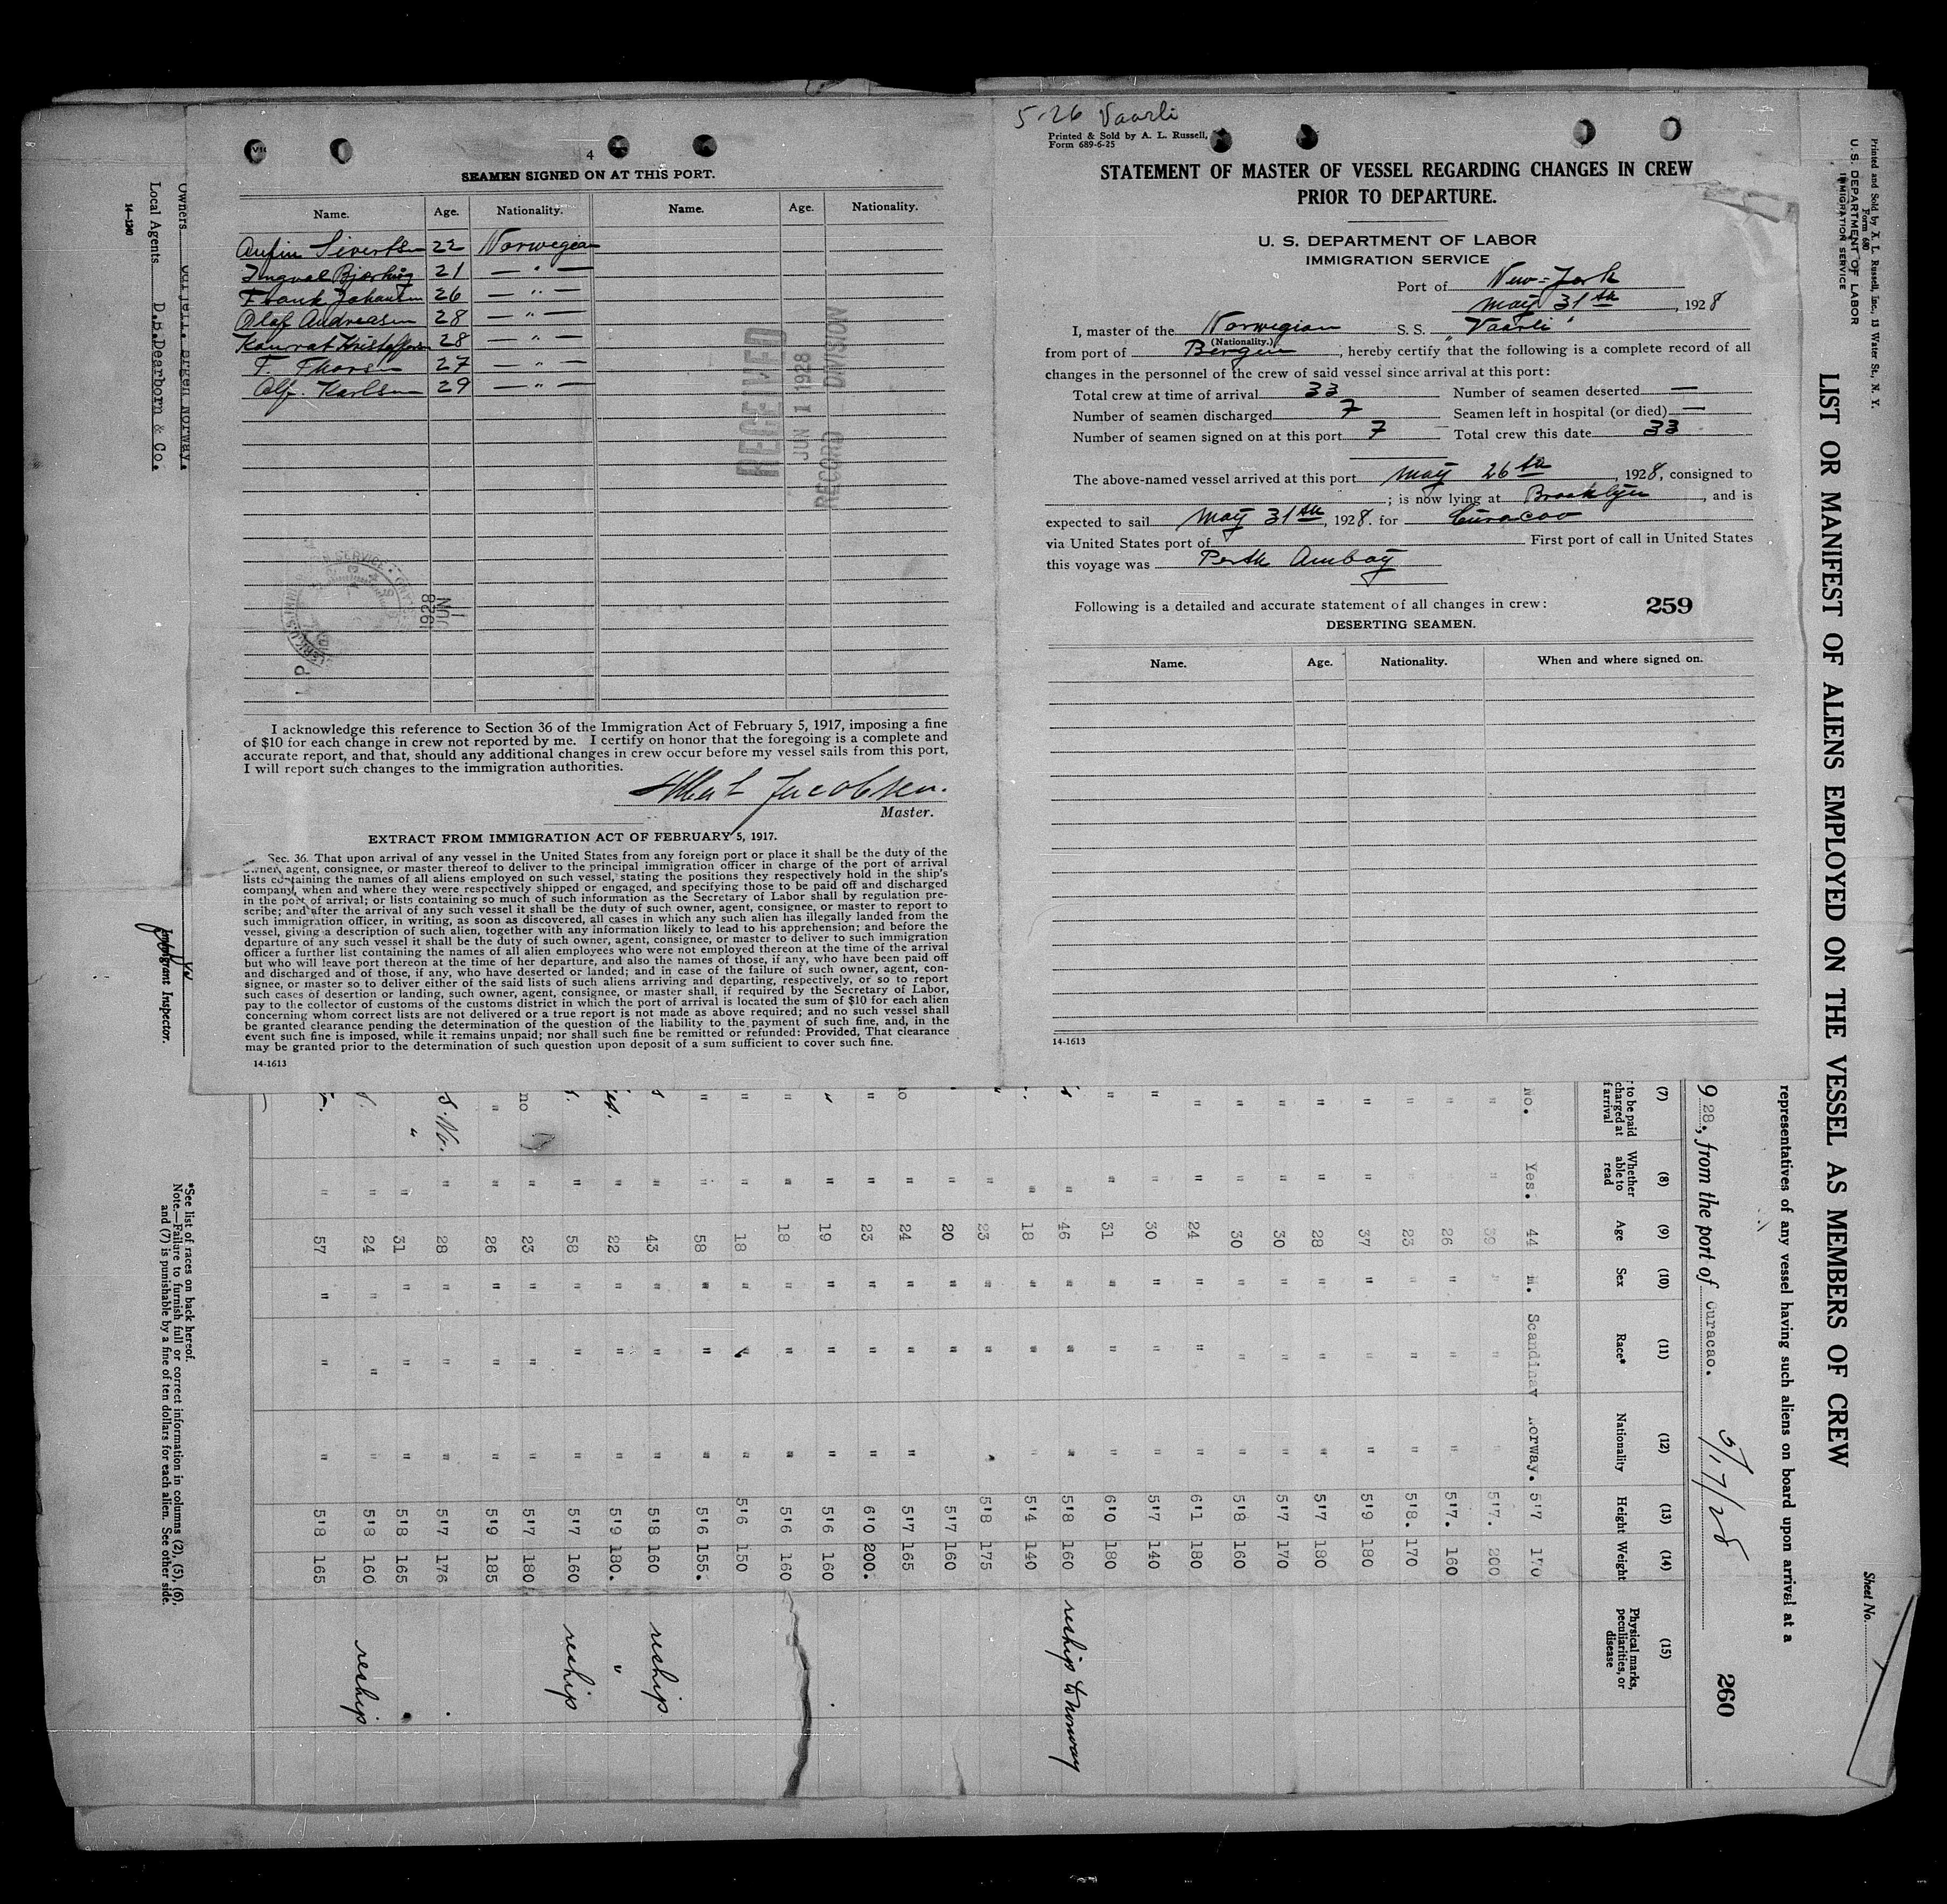 5-26 Vaarli
Printed & Sold by A. L. Russell,
Form 689-6-25
STATEMENT OF MASTER OF VESSEL REGARDING CHANGES IN CREW
PRIOR TO DEPARTURE.
U. S. DEPARTMENT OF LABOR
IMMIGRATION SERVICE
Port of New-York
May 31th, 1928
I, master of the Norwegian S. S. "Vaarli"
(Nationality.)
from port of Bergen, hereby certify that the following is a complete record of all
changes in the personnel of the crew of said vessel since arrival at this port:
Total crew at time of arrival 33 Number of seamen deserted —
Number of seamen discharged 7 Seamen left in hospital (or died) —
Number of seamen signed on at this port 7 Total crew this date 33
The above-named vessel arrived at this port May 26th, 1928, consigned to
; is now lying at Brooklyn, and is
expected to sail May 31th, 1928. for Curacao
via United States port of First port of call in United States
this voyage was Perth Amboy
Following is a detailed and accurate statement of all changes in crew: 259
DESERTING SEAMEN.
Name. Age. Nationality. When and where signed on.
14-1613
4
SEAMEN SIGNED ON AT THIS PORT.
Name. Age. Nationality. Name. Age. Nationality.
Sivertsen 22 Norwegian
Ingval 21 — " —
Frank Johansen 26 — " —
Olaf Andreasen 28 — " —
28 — " —
F. Thorsen 27 — " —
Alf. Karlsen 29 — " —
RECEIVED
JUN 1 1928
RECORD DIVISION
JUN 1
1928
I acknowledge this reference to Section 36 of the Immigration Act of February 5, 1917, imposing a fine
of $10 for each change in crew not reported by me. I certify on honor that the foregoing is a complete and
accurate report, and that, should any additional changes in crew occur before my vessel sails from this port,
I will report such changes to the immigration authorities.
Albert Jacobsen.
Master.
EXTRACT FROM IMMIGRATION ACT OF FEBRUARY 5, 1917.
Sec. 36. That upon arrival of any vessel in the United States from any foreign port or place it shall be the duty of the
owner, agent, consignee, or master thereof to deliver to the principal immigration officer in charge of the port of arrival
lists containing the names of all aliens employed on such vessel, stating the positions they respectively hold in the ship's
company, when and where they were respectively shipped or engaged, and specifying those to be paid off and discharged
in the port of arrival; or lists containing so much of such information as the Secretary of Labor shall by regulation pre-
scribe; and after the arrival of any such vessel it shall be the duty of such owner, agent, consignee, or master to report to
such immigration officer, in writing, as soon as discovered, all cases in which any such alien has illegally landed from the
vessel, giving a description of such alien, together with any information likely to lead to his apprehension; and before the
departure of any such vessel it shall be the duty of such owner, agent, consignee, or master to deliver to such immigration
officer a further list containing the names of all alien employees who were not employed thereon at the time of the arrival
but who will leave port thereon at the time of her departure, and also the names of those, if any, who have been paid off
and discharged and of those, if any, who have deserted or landed; and in case of the failure of such owner, agent, con-
signee, or master so to deliver either of the said lists of such aliens arriving and departing, respectively, or so to report
such cases of desertion or landing, such owner, agent, consignee, or master shall, if required by the Secretary of Labor,
pay to the collector of customs of the customs district in which the port of arrival is located the sum of $10 for each alien
concerning whom correct lists are not delivered or a true report is not made as above required; and no such vessel shall
be granted clearance pending the determination of the question of the liability to the payment of such fine, and, in the
event such fine is imposed, while it remains unpaid; nor shall such fine be remitted or refunded: Provided, That clearance
may be granted prior to the determination of such question upon deposit of a sum sufficient to cover such fine.
14-1613
Printed and Sold by A. L. Russell, Inc., 13 Water St., N. Y.
Form 680
U. S. DEPARTMENT OF LABOR
IMMIGRATION SERVICE
Sheet No. 1
LIST OR MANIFEST OF ALIENS EMPLOYED ON THE VESSEL AS MEMBERS OF CREW
representatives of any vessel having such aliens on board upon arrival at a
928., from the port of Curacao. 5/17/28 260
(7) (8) (9) (10) (11) (12) (13) (14) (15)
to be paid
charged at
f arrival
Whether
able to
read
Age Sex Race* Nationality Height Weight
Physical marks,
peculiarities, or
disease
No. Yes. 44 m. Scandinav Norway. 5'7 170
" " 39 " " " 5'7. 200
" " 26 " " " 5'7. 160
" " 23 " " " 5'8. 170
" " 37 " " " 5'9 180
" " 28 " " " 5'7 180
" " 30 " " " 5'7 170
" " 30 " " " 5'8 160
" " 24 " " " 6'1 180
" " 30 " " " 5'7 140
" " 31 " " " 6'0 180
s " 46 " " " 5'8 160 reship to Norway
" 18 " " " 5'4 140
" " 23 " " " 5'8 175
20 " " 5'7 160
no " 24 " " " 5'7 165
" " 23 " " " 6'0 200.
" " 19 " " " 5'6 160
" " 18 " " " 5'6 160
" " 18 " " " 5'6 150
" " 58 " " " 5'6 155.
s " 43 " " " 5'8 160 reship
" 22 " " " 5'9 180. "
" 58 " " " 5'7 160 reship
no " 23 " " " 5'7 180
" " 26 " " " 5'9 185
s. No. " 28 " " " 5'7 176
" " 31 " " " 5'8 165
" 24 " " " 5'8 160 reship
" 57 " " " 5'8 165
*See list of races on back hereof.
Note.—Failure to furnish full or correct information in columns (2), (5), (6),
and (7) is punishable by a fine of ten dollars for each alien. See other side.
Immigrant Inspector.
Owners Bergen Norway.
Local Agents D.B.Dearborn & Co.
14—1240